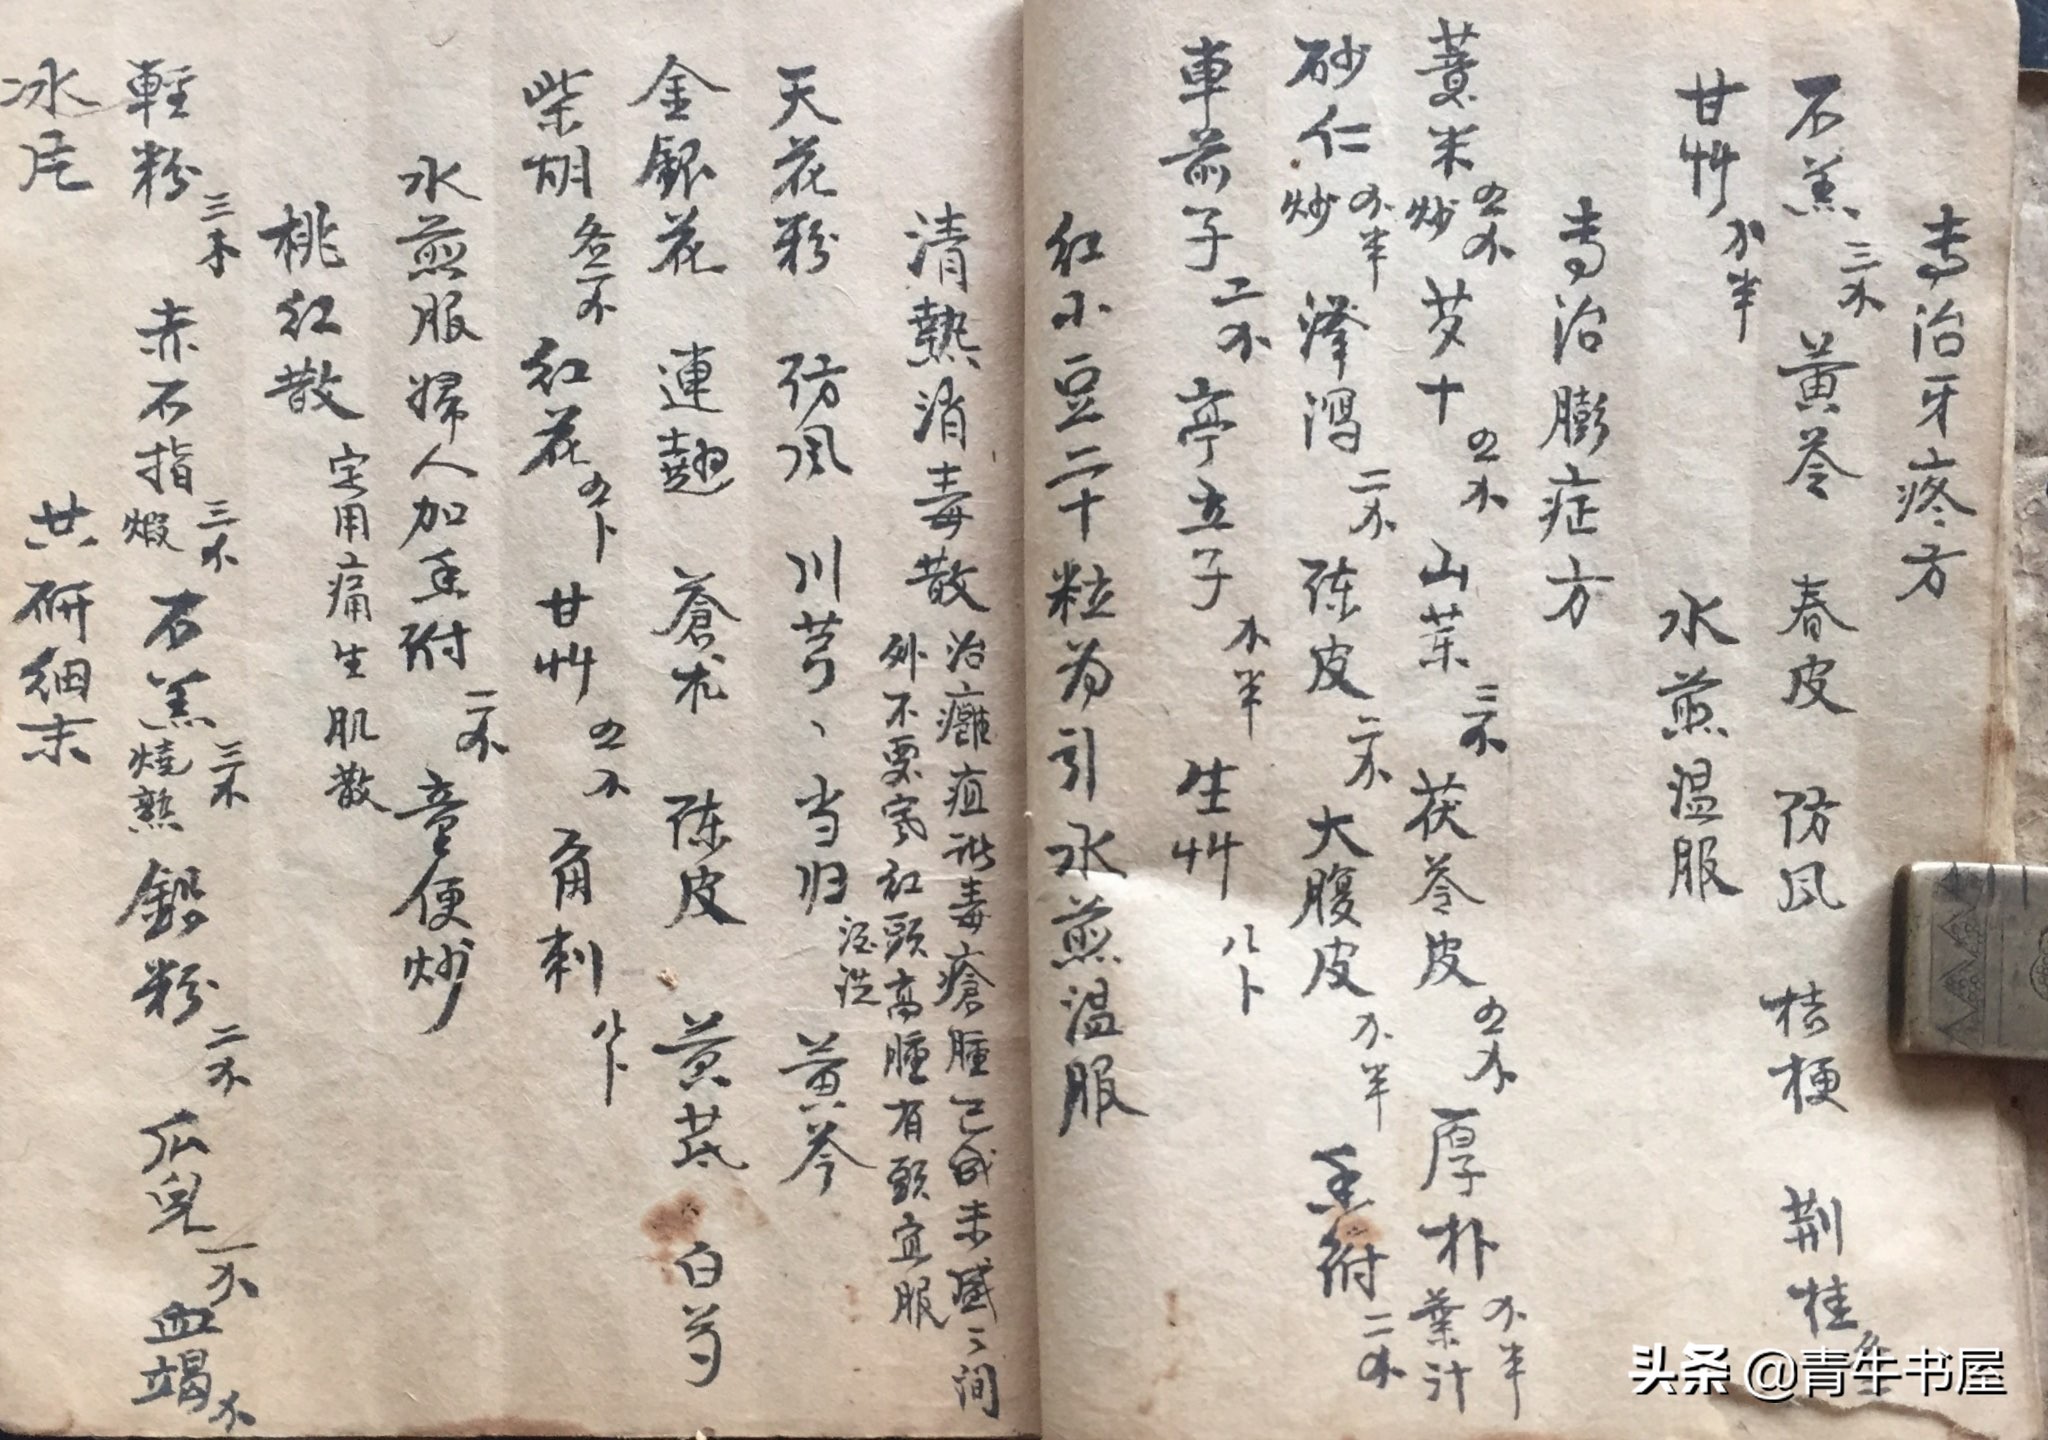 专治牙疼方
石羔三不 黄芩 春皮 防风 桔梗 荆桂
甘艸不半 水煎温服
专治膨症方
蒉米炒四不 芡十四不 山茱三不 茯苓皮四不 厚朴葉汁不半
砂仁炒不半 泽瀉二不 陈皮二不 大腹皮不半 香附二不
車前子二不 亭立子不半 生艸八卜
红小豆二十粒为引水煎温服
清熱消毒散 治癰疽諸毒瘡腫已成未盛之间
外不要宽红頭高腫有頭宜服
天花粉 防风 川芎 当归酒洗 黄芩
金銀花 連翹 蒼朮 陈皮 黄芪 白芍
柴胡各一不 红花四卜 甘艸四不 角刺八卜
水煎服婦人加香附二不童便炒
桃红散 定用痛生肌散
輕粉三不 赤石指煅三不 石羔燒熟三不 鉛粉二不 瓜兒一不 血竭不
冰片 共研细末
头条 @青牛书屋